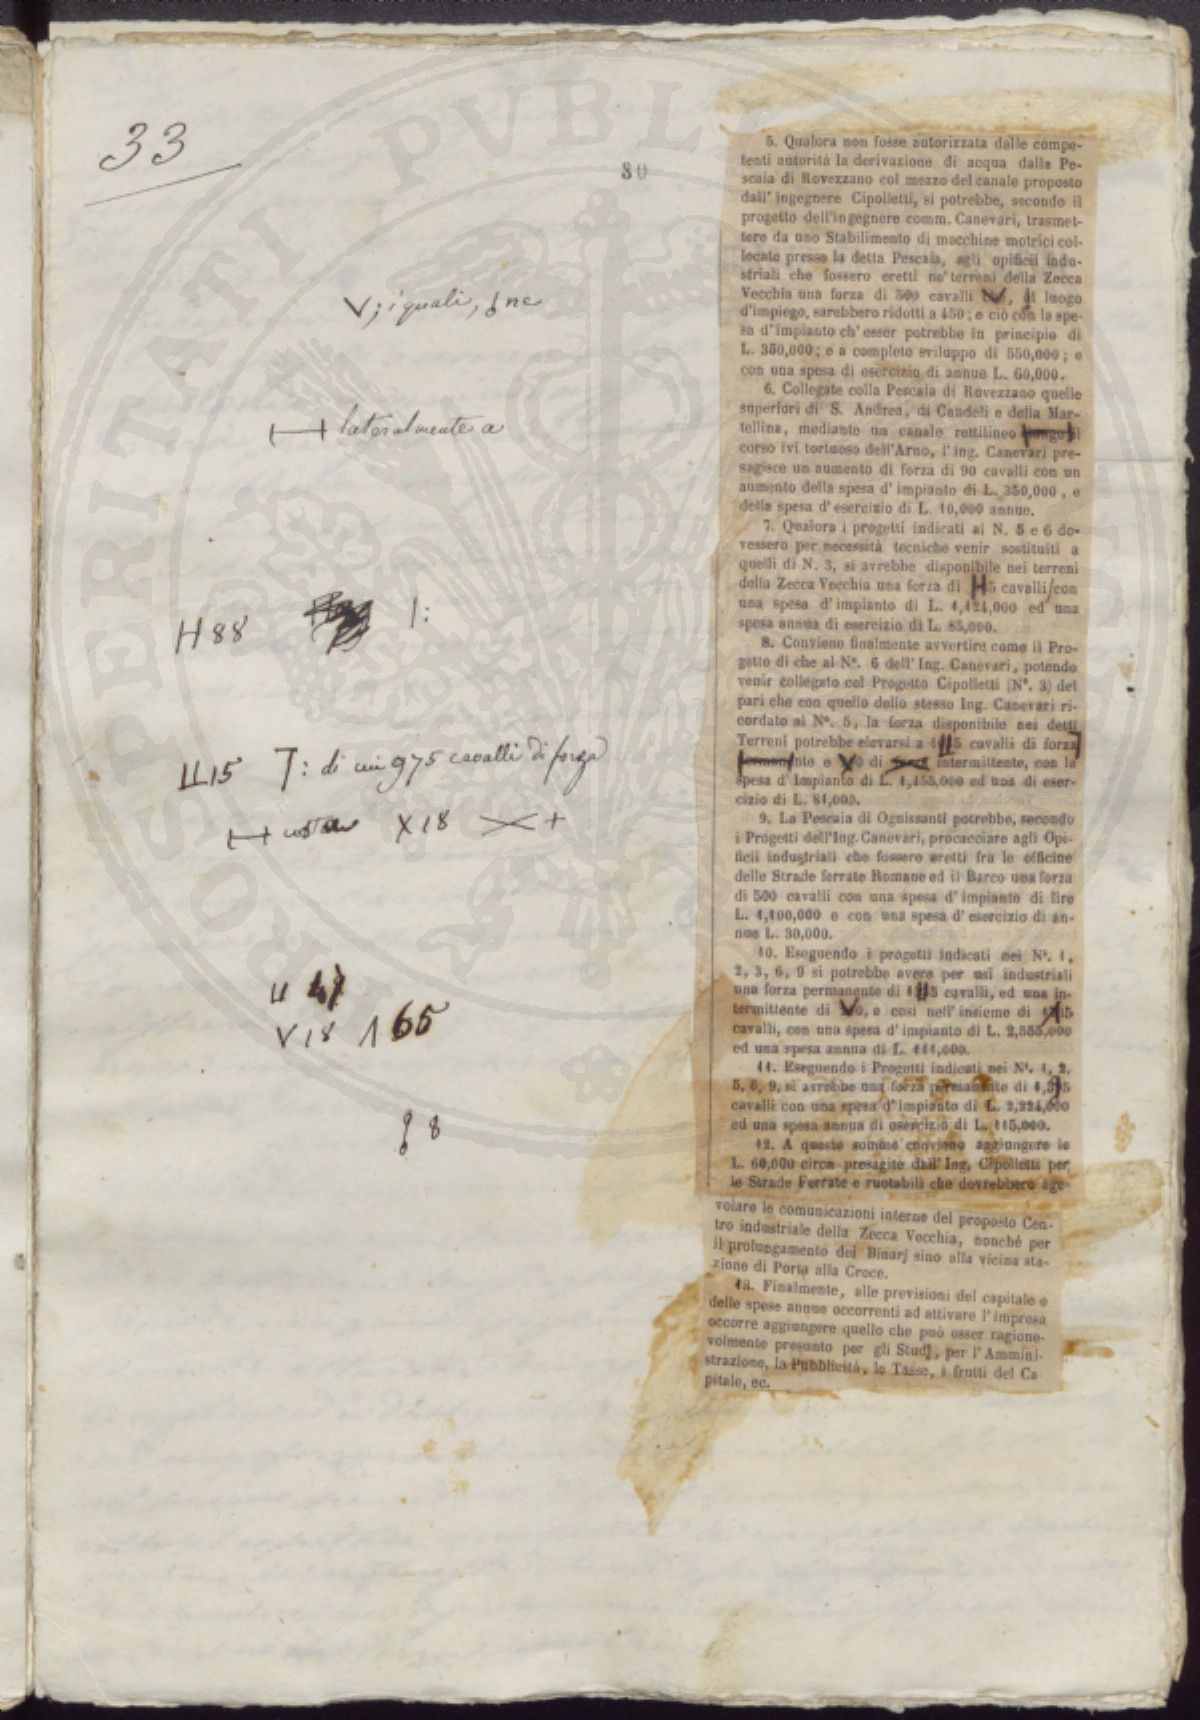 33
80
V; i quali, ne
lateralmente a
H 88 1:
15 T: di cui 975 cavalli di forza
X 18 +
47
V 18 65
8
5. Qualora non fosse autorizzata dalle compe-
tenti autorità la derivazione di acqua dalla Pe-
scaia di Rovezzano col mezzo del canale proposto
dall' ingegnere Cipolletti, si potrebbe, secondo il
progetto dell'ingegnere comm. Canevari, trasmet-
tere da uno Stabilimento di macchine motrici col-
locate presso la detta Pescaia, agli opificii indu-
striali che fossero eretti ne' terreni della Zecca
Vecchia una forza di 500 cavalli , luogo
d'impiego, sarebbero ridotti a 450; e ciò con la spe-
sa d' impianto ch' esser potrebbe in principio di
L. 350,000; e a completo sviluppo di 550,000; e
con una spesa di esercizio di annue L. 60,000.
6. Collegate colla Pescaia di Rovezzano quelle
superiori di S. Andrea, di Candeli e della Mar-
tellina, mediante un canale rettilineo lungo il
corso ivi tortuoso dell'Arno, l' ing. Canevari pre-
sagisce un aumento di forza di 90 cavalli con un
aumento della spesa d' impianto di L. 350,000, e
della spesa d' esercizio di L. 10,000 annue.
7. Qualora i progetti indicati ai N. 5 e 6 do-
vessero per necessità tecniche venir sostituiti a
quelli di N. 3, si avrebbe disponibile nei terreni
della Zecca Vecchia una forza di 5 cavalli con
una spesa d' impianto di L. 1,124,000 ed una
spesa annua di esercizio di L. 85,000.
8. Conviene finalmente avvertire come il Pro-
getto di che al N°. 6 dell' Ing. Canevari, potendo
venir collegato col Progetto Cipolletti (N°. 3) del
pari che con quello dello stesso Ing. Canevari ri-
cordato al N°. 5, la forza disponibile nei detti
Terreni potrebbe elevarsi a 5 cavalli di forza
permanente e di intermittente, con la
spesa d' Impianto di L. 1,455,000 ed una di eser-
cizio di L. 81,000.
9. La Pescaia di Ognissanti potrebbe, secondo
i Progetti dell'Ing. Canevari, procacciare agli Opi-
ficii industriali che fossero eretti fra le officine
delle Strade ferrate Romane ed il Barco una forza
di 500 cavalli con una spesa d' impianto di lire
L. 1,100,000 e con una spesa d' esercizio di an-
nue L. 30,000.
10. Eseguendo i progetti indicati nei N°. 1,
2, 3, 6, 9 si potrebbe avere per usi industriali
una forza permanente di 5 cavalli, ed una in-
termittente di , e così nell'insieme di
cavalli, con una spesa d' impianto di L. 2,555,000
ed una spesa annua di L. 111,000.
11. Eseguendo i Progetti indicati nei N°. 1, 2,
5, 6, 9, si avrebbe una forza permanente di
cavalli con una spesa d' impianto di L. 2,224,000
ed una spesa annua di esercizio di L. 115,000.
12. A queste somme conviene aggiungere le
L. 60,000 circa presagite dall' Ing. Cipolletti per
le Strade Ferrate e ruotabili che dovrebbero age-
volare le comunicazioni interne del proposto Cen-
tro industriale della Zecca Vecchia, nonchè per
il prolungamento dei Binarj sino alla vicina sta-
zione di Porta alla Croce.
13. Finalmente, alle previsioni del capitale e
delle spese annue occorrenti ad attivare l' impresa
occorre aggiungere quello che può esser ragione-
volmente presunto per gli Studj, per l'Ammini-
strazione, la Pubblicità, le Tasse, i frutti del Ca-
pitale, ec.